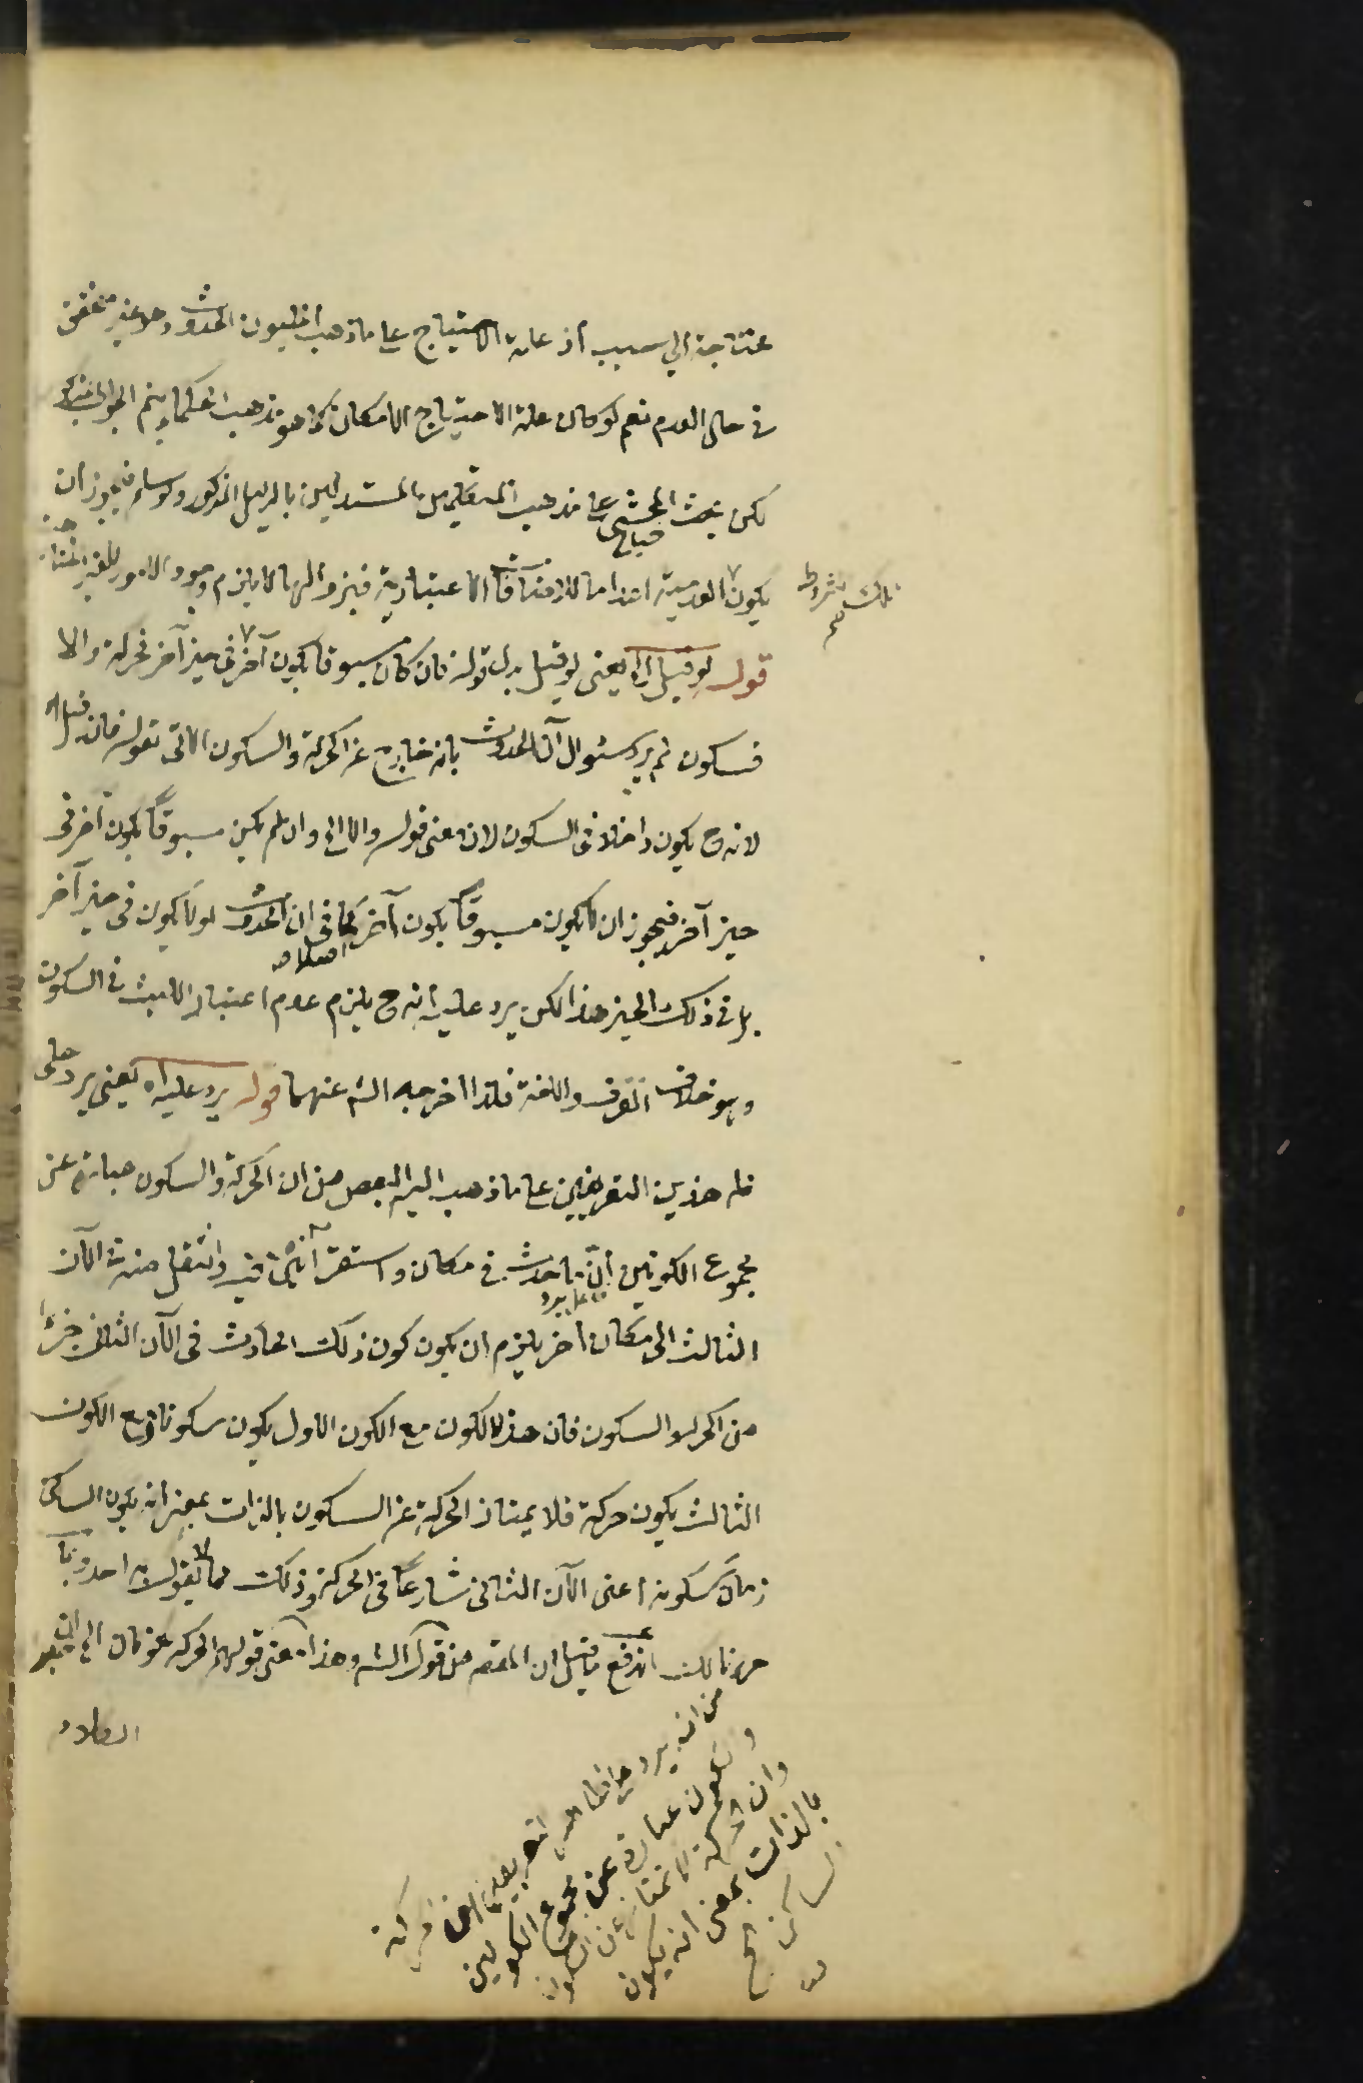 محتاجة الى سبب اذ علة الاحتياج على ما ذهب المليون الحدوث وهو غير متحقق
في حال العدم نعم لو كان علة الاحتياج الامكان كما هو مذهب الحكماء يتم الجواب
لكن بحث المحشي على مذهب المتكلمين المستدلين بالدليل المذكور ولو سلم فيجوز ان
يكون العدمية اعداما للاضافات الاعتبارية فبزوالها لا يلزم وجود الامور الغير المتناهية
تلك شروط
قوله لو قيل اه يعنى لو قيل بدل قوله فان كان مسبوقا بكون آخر في حيز آخر فحركة والا
فسكون لم يرد سئوال آن الحدوث بانه خارج عن الحركة والسكون الآتي بقوله فان قيل اه
لانه ح يكون داخلا في السكون لان معنى قوله والا اى وان لم يكن مسبوقا بكون آخر في
حيز آخر فيجوز ان لا يكون مسبوقا بكون آخر كما في ان الحدوث او لا يكون في حيز آخر
اصلا
بل في ذلك الحيز هذا لكن يرد عليه انه ح يلزم عدم اعتبار اللبث في السكون
وهو خلاف العرف واللغة فلذا اخرجه الش عنهما قوله يرد عليه اه يعنى يرد على
ظ هذين التعريفين على ما ذهب اليه البعض من ان الحركة والسكون عبارة عن
مجموع الكونين ان ما حدث في مكان واستقر آنين فيه وانتقل منه في الآن
الثالث الى مكان آخر يلزم ان يكون كون ذلك الحادث في الآن الثانى جزءا
من الحركة والسكون فان هذا الكون مع الكون الاول يكون سكونا ومع الكون
الثالث يكون حركة فلا يمتاز الحركة عن السكون بالذات بمعنى انه يكون الساكن
زمان سكونه اعنى الآن الثانى شارعا في الحركة وذلك مما لا يقول به احد
اندفع ما قيل ان المفهم من قول الش وهذا معنى قولهم الحركة
من انه يرد على ظاهر التعريفين ان الحركة
والسكون عبارة عن مجموع الكونين
وان الحركة لا تمتاز عن السكون
بالذات بمعنى انه يكون
الساكن